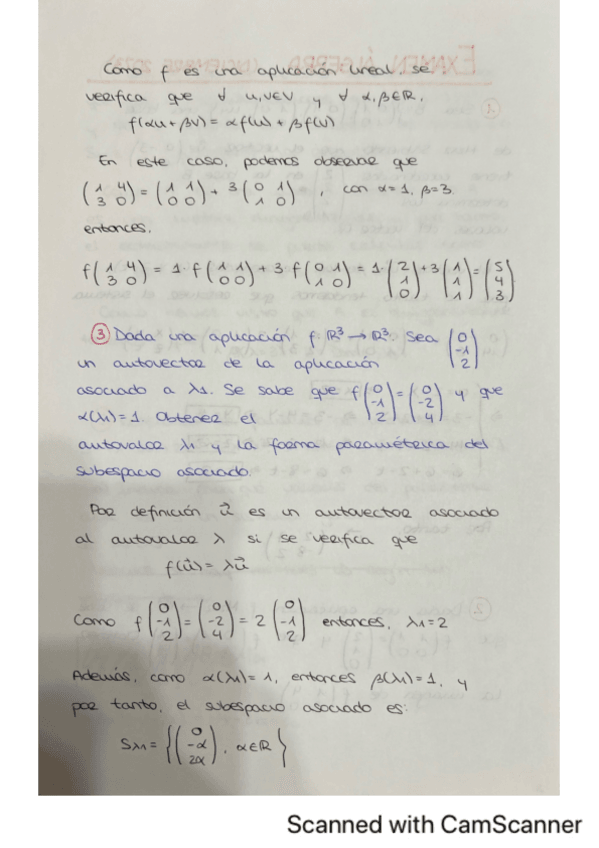 Como f es una aplicación lineal, se
verifica que ∀ u,v∈V y ∀ α,β∈ℝ,
f(αu+βv) = αf(u)+βf(v)
En este caso, podemos observar que
(1 4; 3 0) = (1 1; 0 0) + 3(0 1; 1 0), con α=1, β=3
entonces,
f(1 4; 3 0) = 1·f(1 1; 0 0) + 3·f(0 1; 1 0) = 1·(2; 1; 0) + 3(1; 1; 1) = (5; 4; 3)
③ Dada una aplicación f ℝ³→ℝ³. Sea (0; -1; 2)
un autovector de la aplicación
asociado a λ1. Se sabe que f(0; -1; 2) = (0; -2; 4) y que
α(λ1)=1. Obtener el
autovalor λ1 y la forma paramétrica del
subespacio asociado.
Por definición u⃗ es un autovector asociado
al autovalor λ si se verifica que
f(u⃗) = λu⃗
Como f(0; -1; 2) = (0; -2; 4) = 2(0; -1; 2) entonces, λ1=2
Además, como α(λ1)=1, entonces β(λ1)=1, y
por tanto, el subespacio asociado es:
Sλ1 = {(0; -α; 2α), α∈ℝ}
Scanned with CamScanner